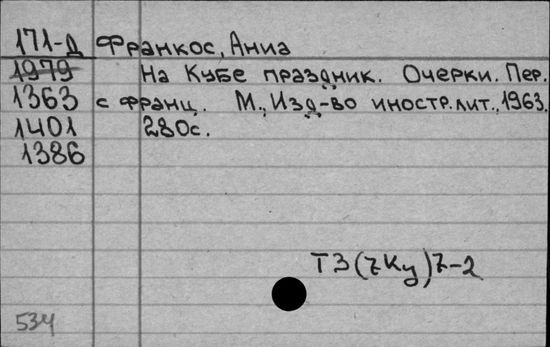 171-Д Франкос, Аниа
1979 На Кубе праздник. Очерки. Пер.
1363 с франц. М., Изд-во иностр. лит., 1963.
1401 280с.
1386
Т3(7Ку)7-2
534